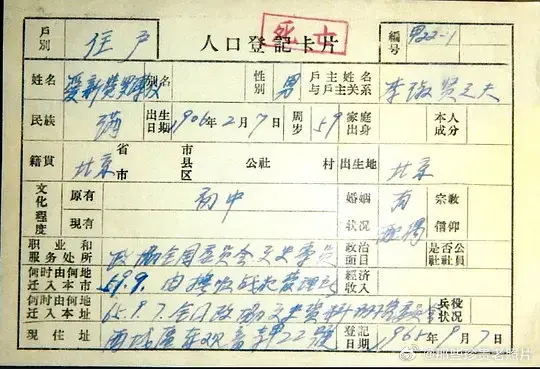 死亡
戶別 住戶 人口登記卡片 編号 男22-1
姓名 愛新覺羅溥儀 别名 性别 男 戶主姓名与戶主关系 李淑贤之夫
民族 满 出生日期 1906年2月7日 周岁 59 家庭出身 本人成分
籍貫 北京 省市 市县区 公社 村 出生地 北京
文化程度 原有 初中 婚姻状况 有 宗教信仰
现有
职业和服务处所 政协全国委员会文史专员 政治面目 是否公社社員
何时由何地迁入本市 59.9. 由撫順战犯管理所 經济收入
何时由何地迁入本址 65.9.7. 全国政协文史资料研究委員会 兵役状况
现住址 西城區东观音寺22號 登記日期 1965年9月7日
@那些珍贵老照片